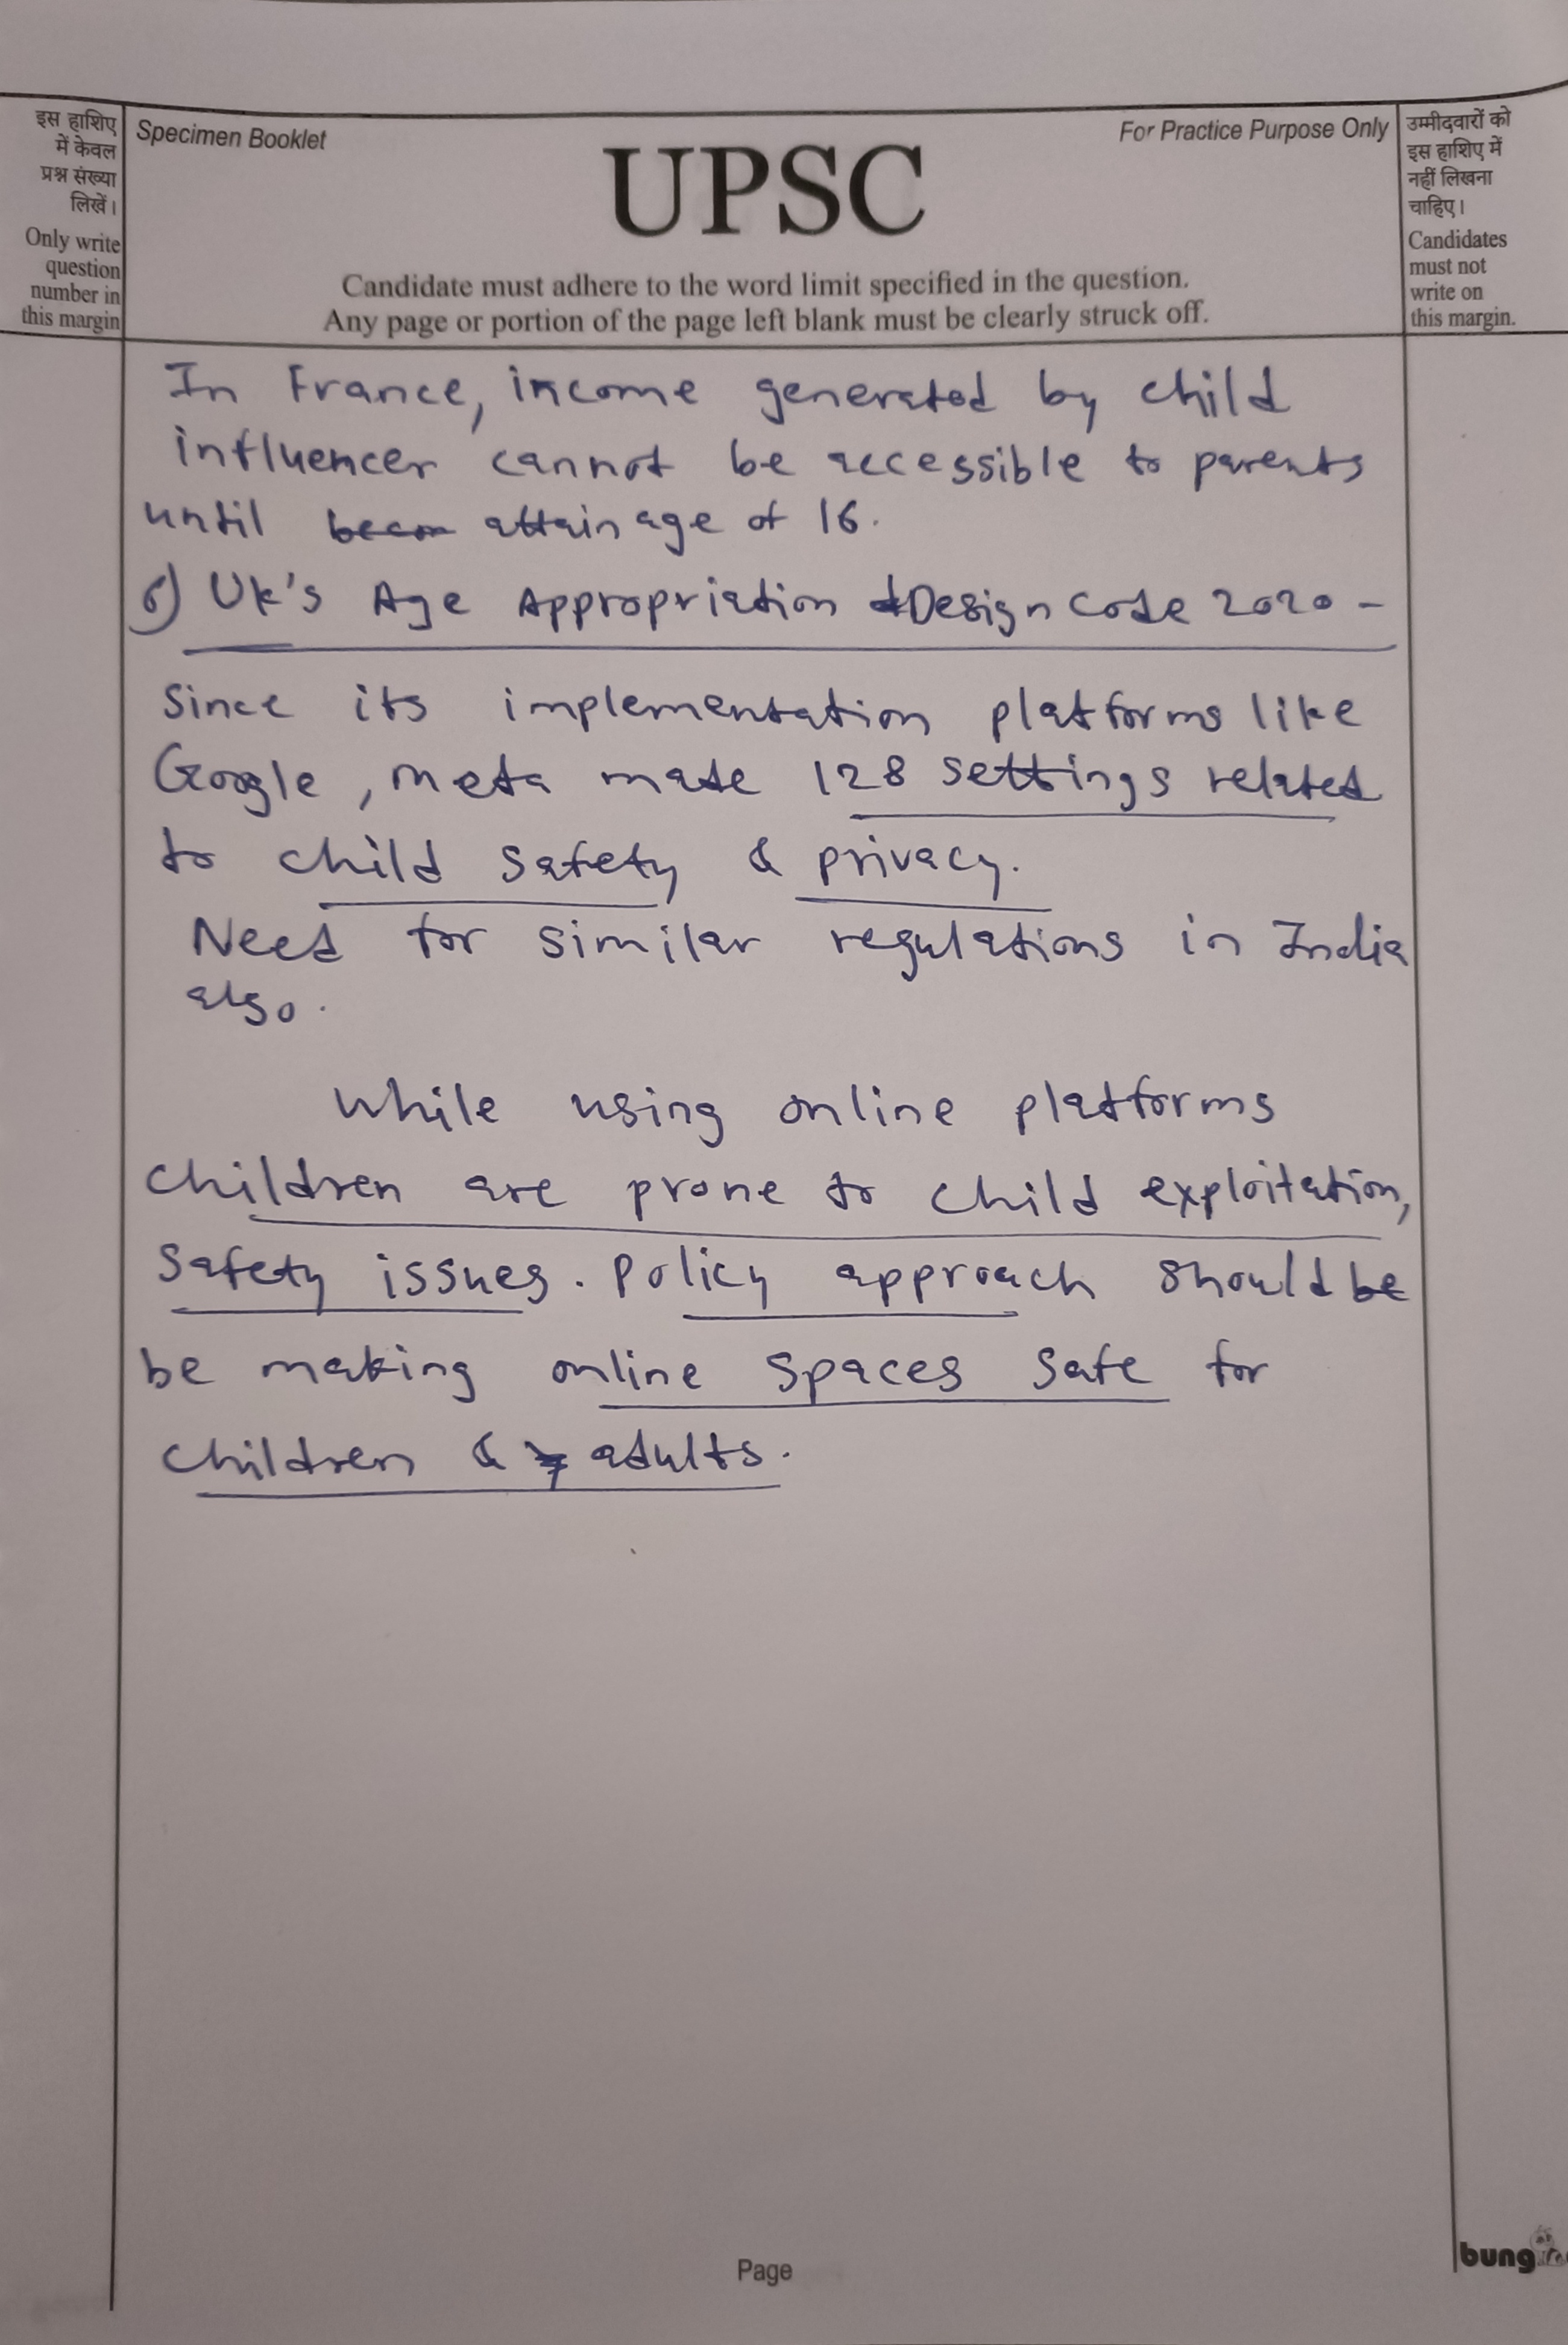 इस हाशिए
में केवल
प्रश्न संख्या
लिखें।
Only write
question
number in
this margin
Specimen Booklet
For Practice Purpose Only
UPSC
Candidate must adhere to the word limit specified in the question.
Any page or portion of the page left blank must be clearly struck off.
उम्मीदवारों को
इस हाशिए में
नहीं लिखना
चाहिए।
Candidates
must not
write on
this margin.
In France, income generated by child
influencer cannot be accessible to parents
until attain age of 16.
6) UK's Age Appropriation Design Code 2020 -
Since its implementation platforms like
Google, meta made 128 settings related
to child safety & privacy.
Need for similar regulations in India
also.
While using online platforms
children are prone to child exploitation,
safety issues. Policy approach should be
be making online spaces safe for
children & adults.
Page
bung